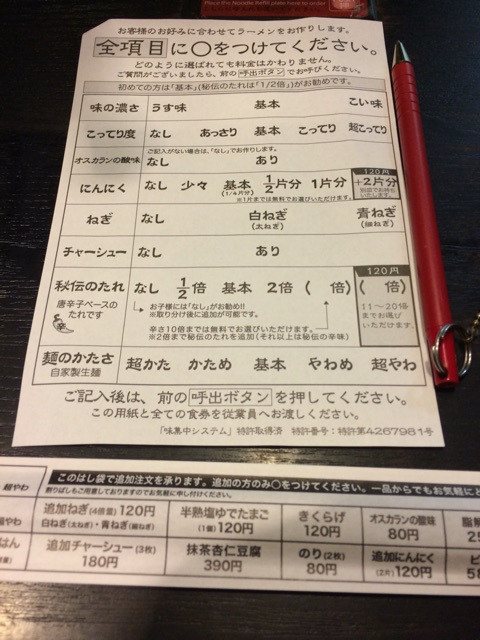 Place this Noodle Refill plate here to order
お客様のお好みに合わせてラーメンをお作りします。
全項目に〇をつけてください。
どのように選ばれても料金はかわりません。
ご質問がございましたら、前の呼出ボタンでお呼びください。
初めての方は「基本」(秘伝のたれは「1/2倍」)がお勧めです。
味の濃さ うす味 基本 こい味
こってり度 なし あっさり 基本 こってり 超こってり
ご記入がない場合は、「なし」でお作りします。
オスカランの酸味 なし あり
120円
にんにく なし 少々 基本 1/2片分 1片分 +2片分
(1/4片分)
※1片までは無料でお選びいただけます。
ねぎ なし 白ねぎ 青ねぎ
(太ねぎ) (細ねぎ)
チャーシュー なし あり
120円
秘伝のたれ なし 1/2倍 基本 2倍 ( 倍) ( 倍)
唐辛子ベースの
たれです
辛
お子様には「なし」がお勧め!!
※取り分け後に追加が可能です。
11〜20倍
までお選び
いただけます。
辛さ10倍までは無料でお選びいただけます。
※2倍まで秘伝のたれを追加(それ以上は秘伝の辛味)
麺のかたさ 超かた かため 基本 やわめ 超やわ
自家製生麺
ご記入後は、前の呼出ボタンを押してください。
この用紙と全ての食券を従業員へお渡しください。
「味集中システム」特許取得済 特許番号:特許第4267981号
このはし袋で追加注文を承ります。追加の方のみ〇をつけてください。一品からでもお気軽に
割りばしもご用意しておりますのでお気軽に申し付けください。
超やわ
追加ねぎ(4倍量)120円 半熟塩ゆでたまご きくらげ オスカランの酸味
白ねぎ(太ねぎ)・青ねぎ(細ねぎ) (1個)120円 120円 80円
追加チャーシュー(3枚) 抹茶杏仁豆腐 のり(2枚) 追加にんにく
180円 390円 80円 (2片)120円